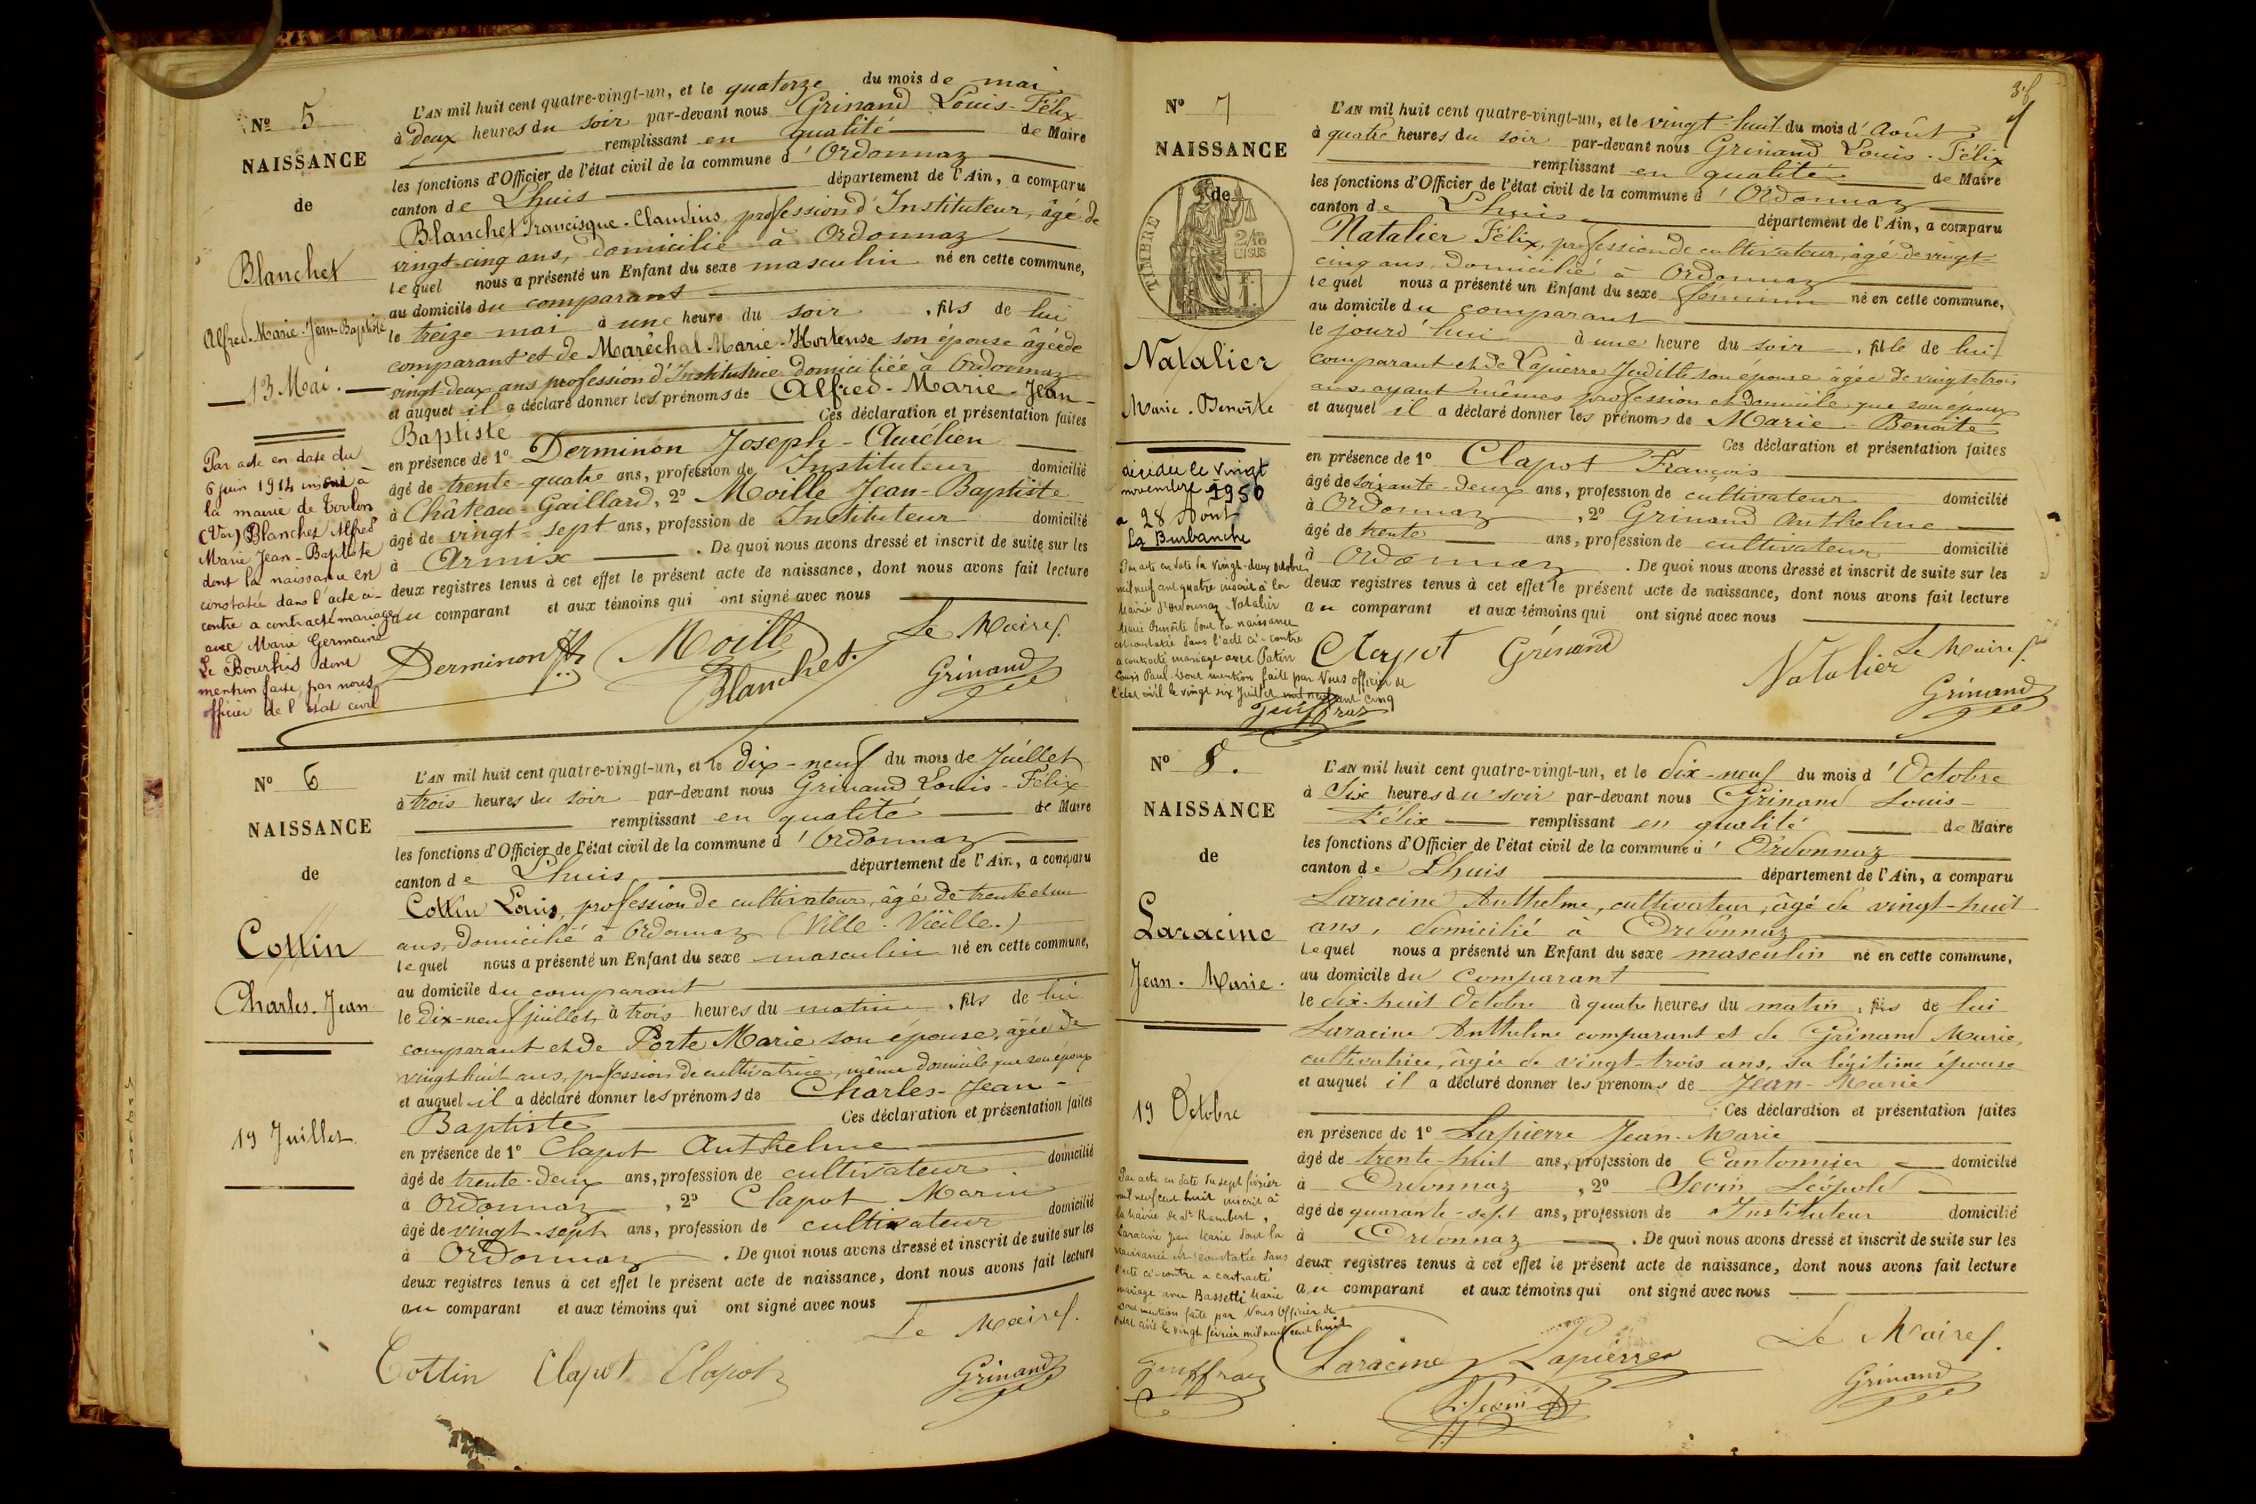 Nº 5
NAISSANCE
de
Blanchet
Alfred-Marie-Jean-Baptiste
13 Mai.
Par acte en date du
6 juin 1914 inscrit à
la mairie de Toulon
(Var) Blanchet Alfred
Marie Jean-Baptiste
dont la naissance est
constatée dans l'acte ci-
contre a contracté mariage
avec Marie Germaine
Le Bourhis dont
mention faite par nous
officier de l'état civil
L'AN mil huit cent quatre-vingt-un, et le quatorze du mois de mai
à deux heures du soir par-devant nous Grinand Louis-Félix
remplissant en qualité de Maire
les fonctions d'Officier de l'état civil de la commune d'Ordonnaz
canton de Lhuis département de l'Ain, a comparu
Blanchet Francisque-Claudius, profession d'Instituteur, âgé de
vingt-cinq ans, domicilié à Ordonnaz
lequel nous a présenté un Enfant du sexe masculin né en cette commune,
au domicile du comparant
le treize mai à une heure du soir, fils de lui
comparant et de Maréchal Marie-Hortense son épouse âgée de
vingt-deux ans profession d'Institutrice domiciliée à Ordonnaz
et auquel il a déclaré donner les prénoms de Alfred-Marie-Jean-
Baptiste Ces déclaration et présentation faites
en présence de 1º Derminon Joseph-Aurélien
âgé de trente-quatre ans, profession de Instituteur domicilié
à Château-Gaillard, 2º Moille Jean-Baptiste
âgé de vingt-sept ans, profession de Instituteur domicilié
à Armix. De quoi nous avons dressé et inscrit de suite sur les
deux registres tenus à cet effet le présent acte de naissance, dont nous avons fait lecture
au comparant et aux témoins qui ont signé avec nous
Le Maire.
Derminon Moille Blanchet Grinand
Nº 6
NAISSANCE
de
Cottin
Charles-Jean
19 Juillet.
L'AN mil huit cent quatre-vingt-un, et le dix-neuf du mois de Juillet
à trois heures du soir par-devant nous Grinand Louis-Félix
remplissant en qualité de Maire
les fonctions d'Officier de l'état civil de la commune d'Ordonnaz
canton de Lhuis département de l'Ain, a comparu
Cottin Louis, profession de cultivateur, âgé de trente et un
ans, domicilié à Ordonnaz (Ville-Vieille.)
lequel nous a présenté un Enfant du sexe masculin né en cette commune,
au domicile du comparant
le dix-neuf juillet, à trois heures du matin, fils de lui
comparant et de Porte Marie son épouse, âgée de
vingt-huit ans, profession de cultivatrice, même domicile que son époux
et auquel il a déclaré donner les prénoms de Charles-Jean-
Baptiste Ces déclaration et présentation faites
en présence de 1º Clapot Anthelme
âgé de trente-deux ans, profession de cultivateur domicilié
à Ordonnaz, 2º Clapot Marin
âgé de vingt-sept ans, profession de cultivateur domicilié
à Ordonnaz. De quoi nous avons dressé et inscrit de suite sur les
deux registres tenus à cet effet le présent acte de naissance, dont nous avons fait lecture
au comparant et aux témoins qui ont signé avec nous
Le Maire.
Cottin Clapot Clapot Grinand
Nº 7
NAISSANCE
de
TIMBRE
Natalier
Marie-Benoîte
décédée le vingt
novembre 1950
à 28 Août
La Burbanche
Par acte en date du vingt-deux octobre
mil neuf cent quatre inscrit à la
Mairie d'Ordonnaz Natalier
Marie Benoîte dont la naissance
est constatée dans l'acte ci-contre
a contracté mariage avec Patin
Louis Paul dont mention faite par Nous officier de
l'état civil le vingt six Juillet mil neuf cent cinq
L'AN mil huit cent quatre-vingt-un, et le vingt-huit du mois d'Août
à quatre heures du soir par-devant nous Grinand Louis-Félix
remplissant en qualité de Maire
les fonctions d'Officier de l'état civil de la commune d'Ordonnaz
canton de Lhuis département de l'Ain, a comparu
Natalier Félix, profession de cultivateur, âgé de vingt-
cinq ans, domicilié à Ordonnaz
lequel nous a présenté un Enfant du sexe féminin né en cette commune,
au domicile du comparant
le jourd'hui à une heure du soir, fille de lui
comparant et de Lapierre Judith son épouse âgée de vingt-trois
ans, ayant mêmes profession et domicile que son époux
et auquel il a déclaré donner les prénoms de Marie-Benoîte
Ces déclaration et présentation faites
en présence de 1º Clapot François
âgé de soixante-deux ans, profession de cultivateur domicilié
à Ordonnaz, 2º Grinand Anthelme
âgé de trente ans, profession de cultivateur domicilié
à Ordonnaz. De quoi nous avons dressé et inscrit de suite sur les
deux registres tenus à cet effet le présent acte de naissance, dont nous avons fait lecture
au comparant et aux témoins qui ont signé avec nous
Le Maire.
Clapot Grinand Natalier Grinand
Nº 8.
NAISSANCE
de
Laracine
Jean-Marie.
19 Octobre
Par acte en date du sept février
mil neuf cent huit inscrit à
la Mairie de St Rambert,
Laracine Jean Marie dont la
naissance est constatée dans
l'acte ci-contre a contracté
mariage avec Bassetti Marie
dont mention faite par Nous Officier de
l'état civil le vingt février mil neuf cent huit
L'AN mil huit cent quatre-vingt-un, et le dix-neuf du mois d'Octobre
à Six heures du soir par-devant nous Grinand Louis-
Félix remplissant en qualité de Maire
les fonctions d'Officier de l'état civil de la commune d'Ordonnaz
canton de Lhuis département de l'Ain, a comparu
Laracine Anthelme, cultivateur, âgé de vingt-huit
ans, domicilié à Ordonnaz
lequel nous a présenté un Enfant du sexe masculin né en cette commune,
au domicile du Comparant
le dix-huit Octobre à quatre heures du matin, fils de lui
Laracine Anthelme comparant et de Grinand Marie,
cultivatrice, âgée de vingt-trois ans, sa légitime épouse
et auquel il a déclaré donner les prénoms de Jean-Marie
Ces déclaration et présentation faites
en présence de 1º Lapierre Jean-Marie
âgé de trente-huit ans, profession de Cantonnier domicilié
à Ordonnaz, 2º Sevin Léopold
âgé de quarante-sept ans, profession de Instituteur domicilié
à Ordonnaz. De quoi nous avons dressé et inscrit de suite sur les
deux registres tenus à cet effet le présent acte de naissance, dont nous avons fait lecture
au comparant et aux témoins qui ont signé avec nous
Le Maire.
Laracine Lapierre Grinand